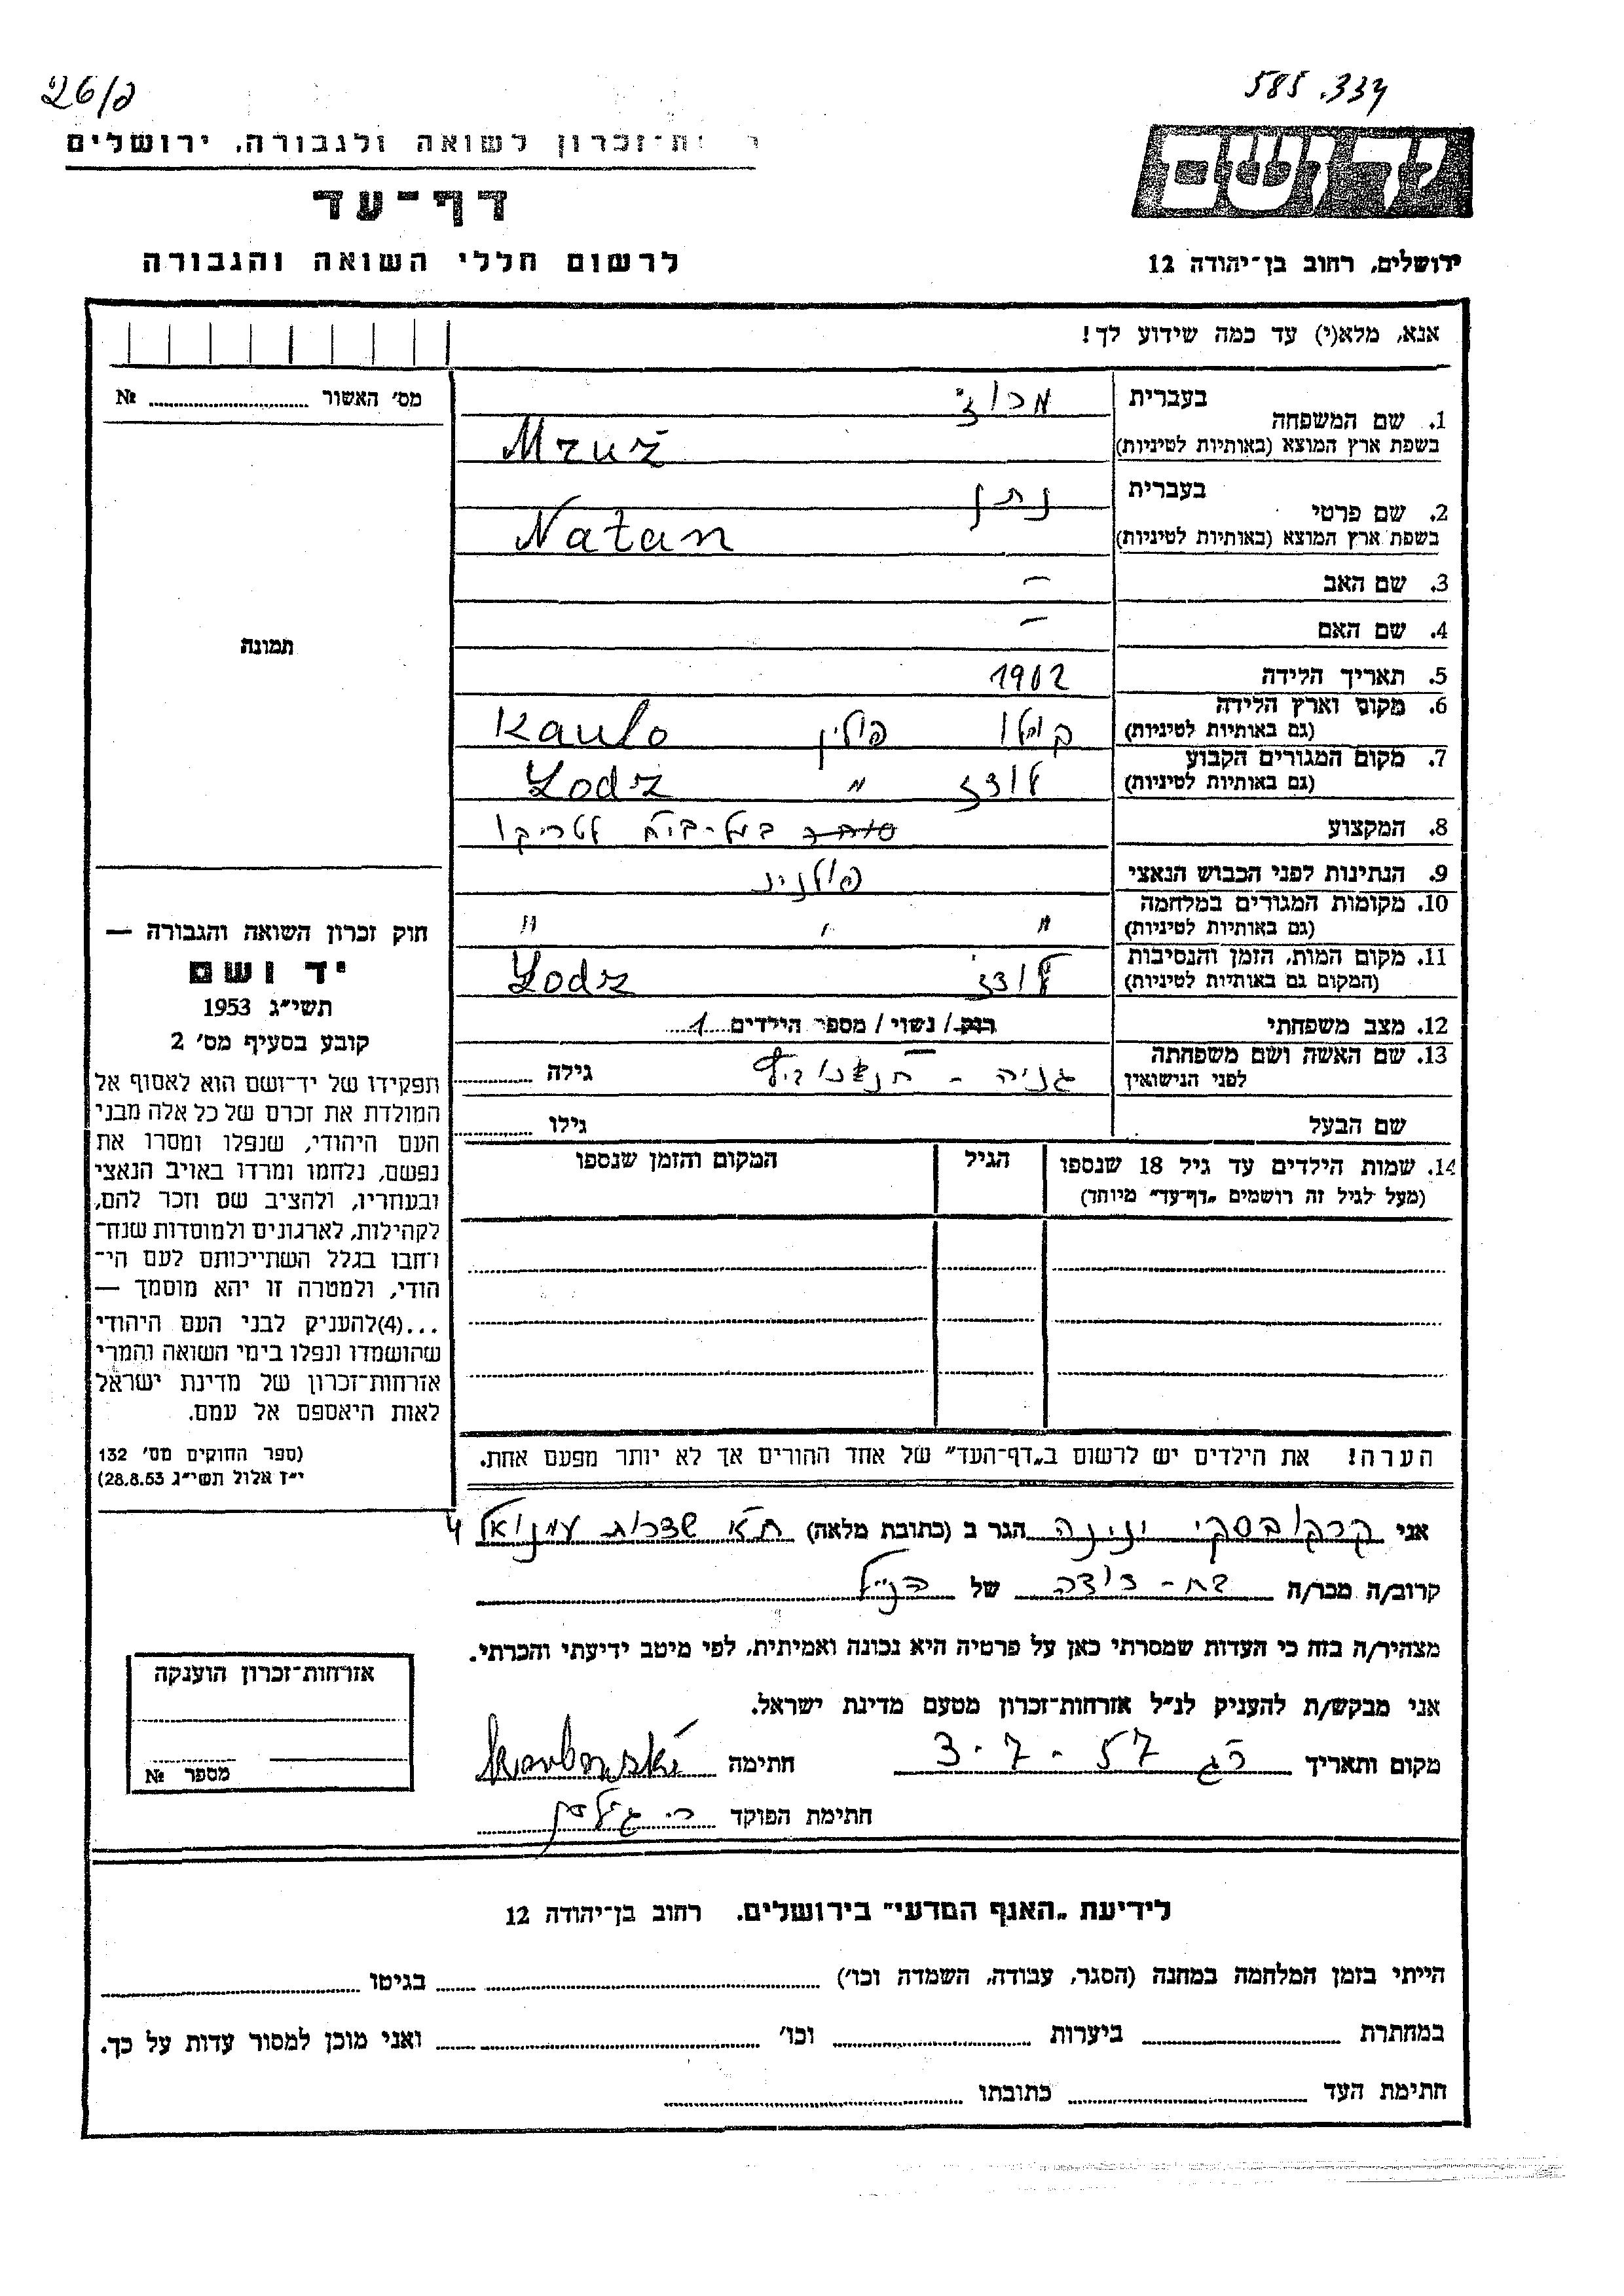 26/ג
585.334
רשות־זכרון לשואה ולגבורה, ירושלים
דף־עד
לרשום חללי השואה והגבורה
יד ושם
ירושלים, רחוב בן־יהודה 12
אנא, מלא(י) עד כמה שידוע לך!
מס׳ האשור № ........
1. שם המשפחה
בעברית
מרוז׳
בשפת ארץ המוצא (באותיות לטיניות)
Mruż
2. שם פרטי
בעברית
נתן
בשפת ארץ המוצא (באותיות לטיניות)
Natan
3. שם האב –
4. שם האם –
5. תאריך הלידה 1902
6. מקום וארץ הלידה
(גם באותיות לטיניות)
פולין Kaulo
7. מקום המגורים הקבוע
(גם באותיות לטיניות)
לודז׳ " Lodz
8. המקצוע
בעל-בי״ח לטריקו
9. הנתינות לפני הכבוש הנאצי
פולנית
10. מקומות המגורים במלחמה
(גם באותיות לטיניות)
" " "
11. מקום המות, הזמן והנסיבות
(המקום גם באותיות לטיניות)
לודז׳ Lodz
12. מצב משפחתי
רוק / נשוי / מספר הילדים 1
13. שם האשה ושם משפחתה
לפני הנישואין
גניה - גילה ........
שם הבעל גילו ........
14. שמות הילדים עד גיל 18 שנספו
(מעל לגיל זה רושמים „דף־עד" מיוחד)
הגיל
המקום והזמן שנספו
תמונה
חוק זכרון השואה והגבורה —
יד ושם
תשי״ג 1953
קובע בסעיף מס׳ 2
תפקידו של יד־ושם הוא לאסוף אל
המולדת את זכרם של כל אלה מבני
העם היהודי, שנפלו ומסרו את
נפשם, נלחמו ומרדו באויב הנאצי
ובעוזריו, ולהציב שם וזכר להם,
לקהילות, לארגונים ולמוסדות שנח־
רחבו בגלל השתייכותם לעם הי־
הודי, ולמטרה זו יהא מוסמך —
...(4)להעניק לבני העם היהודי
שהושמדו ונפלו בימי השואה והמרי
אזרחות־זכרון של מדינת ישראל
לאות היאספם אל עמם.
(ספר החוקים מס׳ 132
י״ז אלול תשי״ג 28.8.53)
הערה! את הילדים יש לרשום ב„דף־העד" של אחד ההורים אך לא יותר מפעם אחת.
אני קרקובסקי ינינה הגר ב (כתובת מלאה) ת״א שדרות עמנואל 4
קרוב/ה מכר/ה בת-דודה של הנ״ל
מצהיר/ה בזה כי העדות שמסרתי כאן על פרטיה היא נכונה ואמיתית, לפי מיטב ידיעתי והכרתי.
אני מבקש/ת להעניק לנ״ל אזרחות־זכרון מטעם מדינת ישראל.
מקום ותאריך רג 3-7-57 חתימה
חתימת הפוקד
אזרחות־זכרון הוענקה
מספר №
לידיעת „האנף המדעי" בירושלים. רחוב בן־יהודה 12
הייתי בזמן המלחמה במחנה (הסגר, עבודה, השמדה וכו׳) ........ בגיטו ........
במחתרת ........ ביערות ........ וכו׳ ........ ואני מוכן למסור עדות על כך.
חתימת העד ........ כתובתו ........